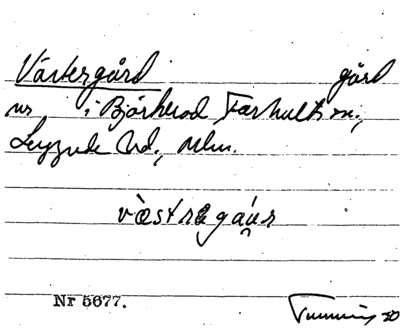 Västergård gård
nr i Björkerod, Farhults sn.,
Luggude hd., Mlm.
væstrəgáụr
Nr 5677.